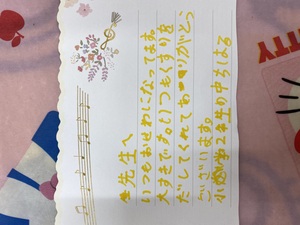 先生へ
いつもおせわになってます
大すきです。いつもくすりを
だしてくれてありがとう
ございます。
小学2年生の
TTY